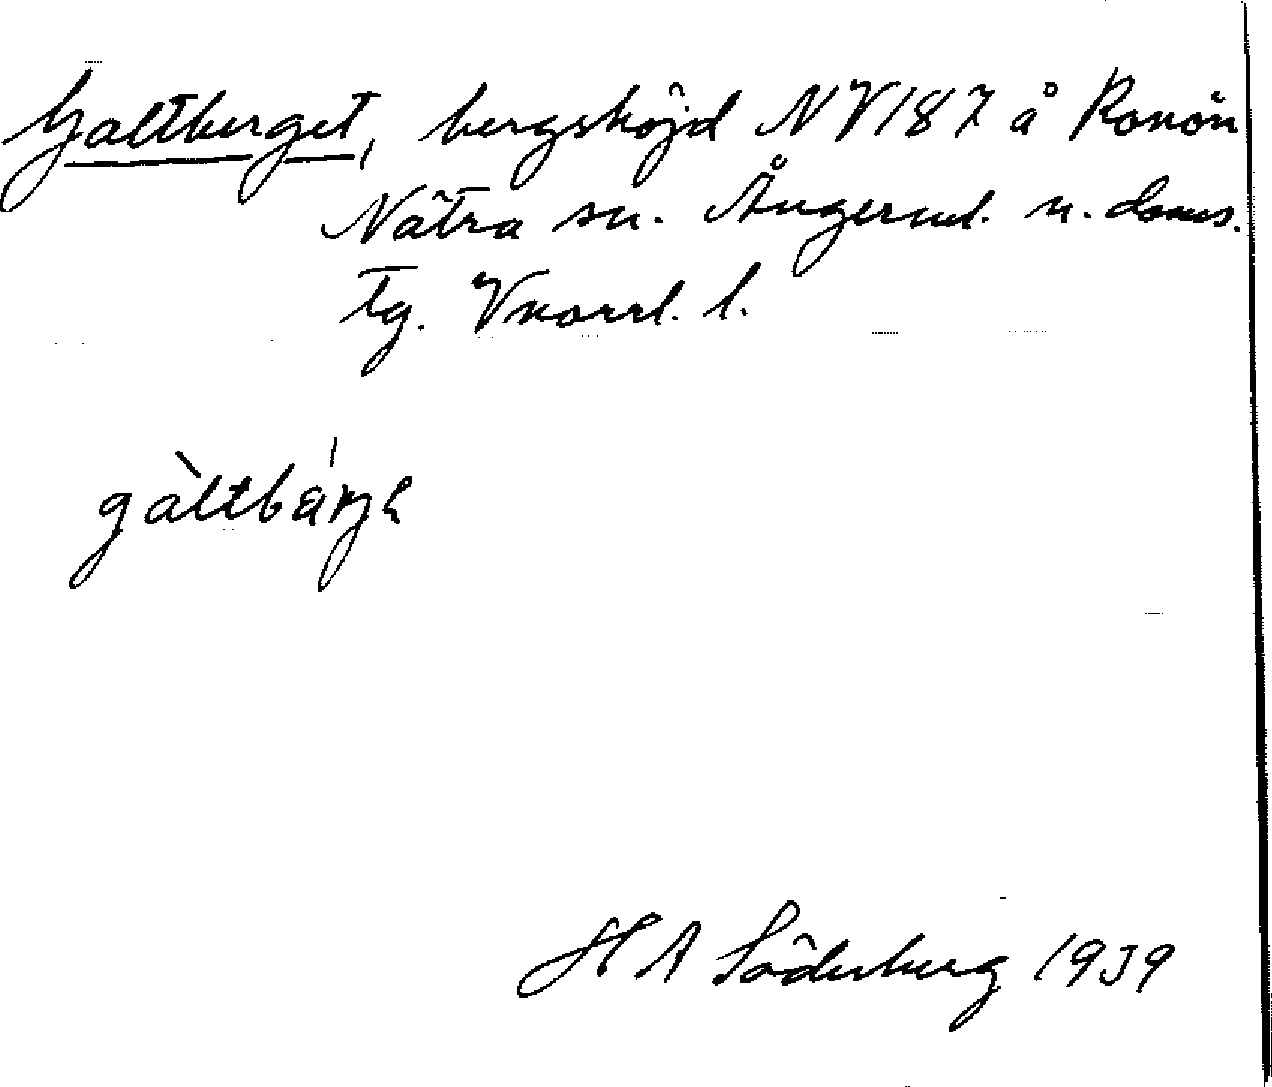 Galtberget, bergshöjd NV187 å Ronön
Nätra sn. Ångerml. n. doms.
tg. Vnorrl. l.
gàltbárjə
H A Söderberg 1939